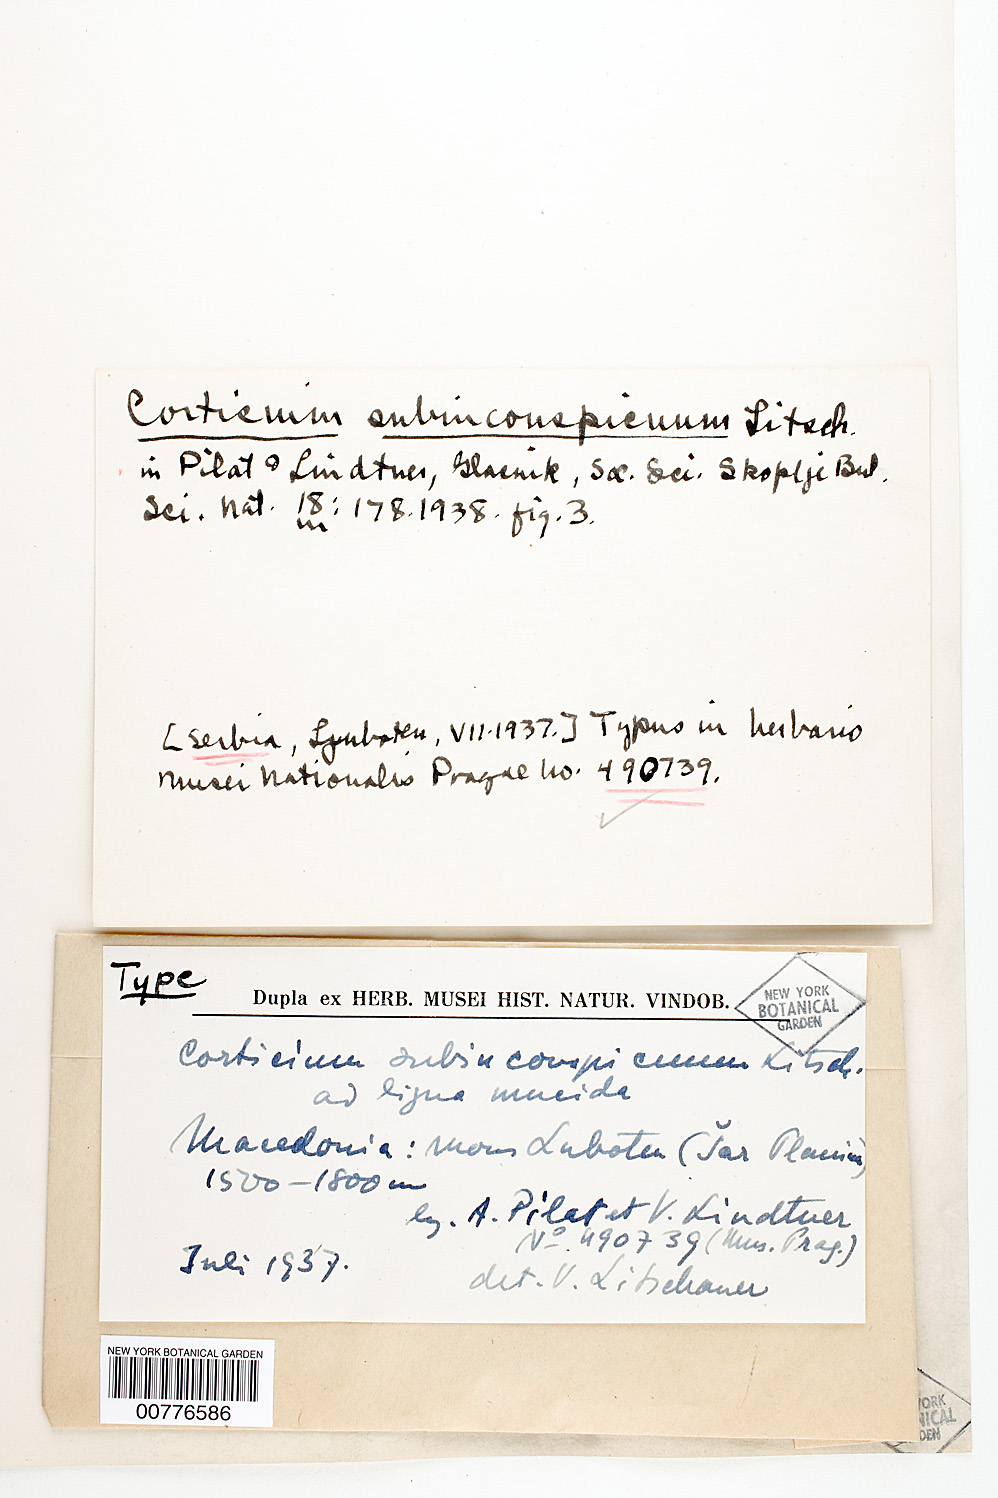 Corticium subinconspicuum Litsch.
in Pilát & Lindtner, Glasnik, Soc. Sci. Skoplji Bul.
Sci. Nat. 18: 178. 1938. fig. 3.
[Serbia, Ljuboten, VII.1937.] Typus in herbario
Musei Nationalis Pragae no. 490739.
Type
Dupla ex HERB. MUSEI HIST. NATUR. VINDOB.
NEW YORK
BOTANICAL
GARDEN
Corticium subinconspicuum Litsch.
ad ligna mucida
Macedonia: mons Luboten (Šar Planina)
1500–1800 m
leg. A. Pilat et V. Lindtner
No. 490739 (Mus. Prag.)
Juli 1937.
det. V. Litschauer
NEW YORK BOTANICAL GARDEN
00776586
YORK
NICAL
DEN